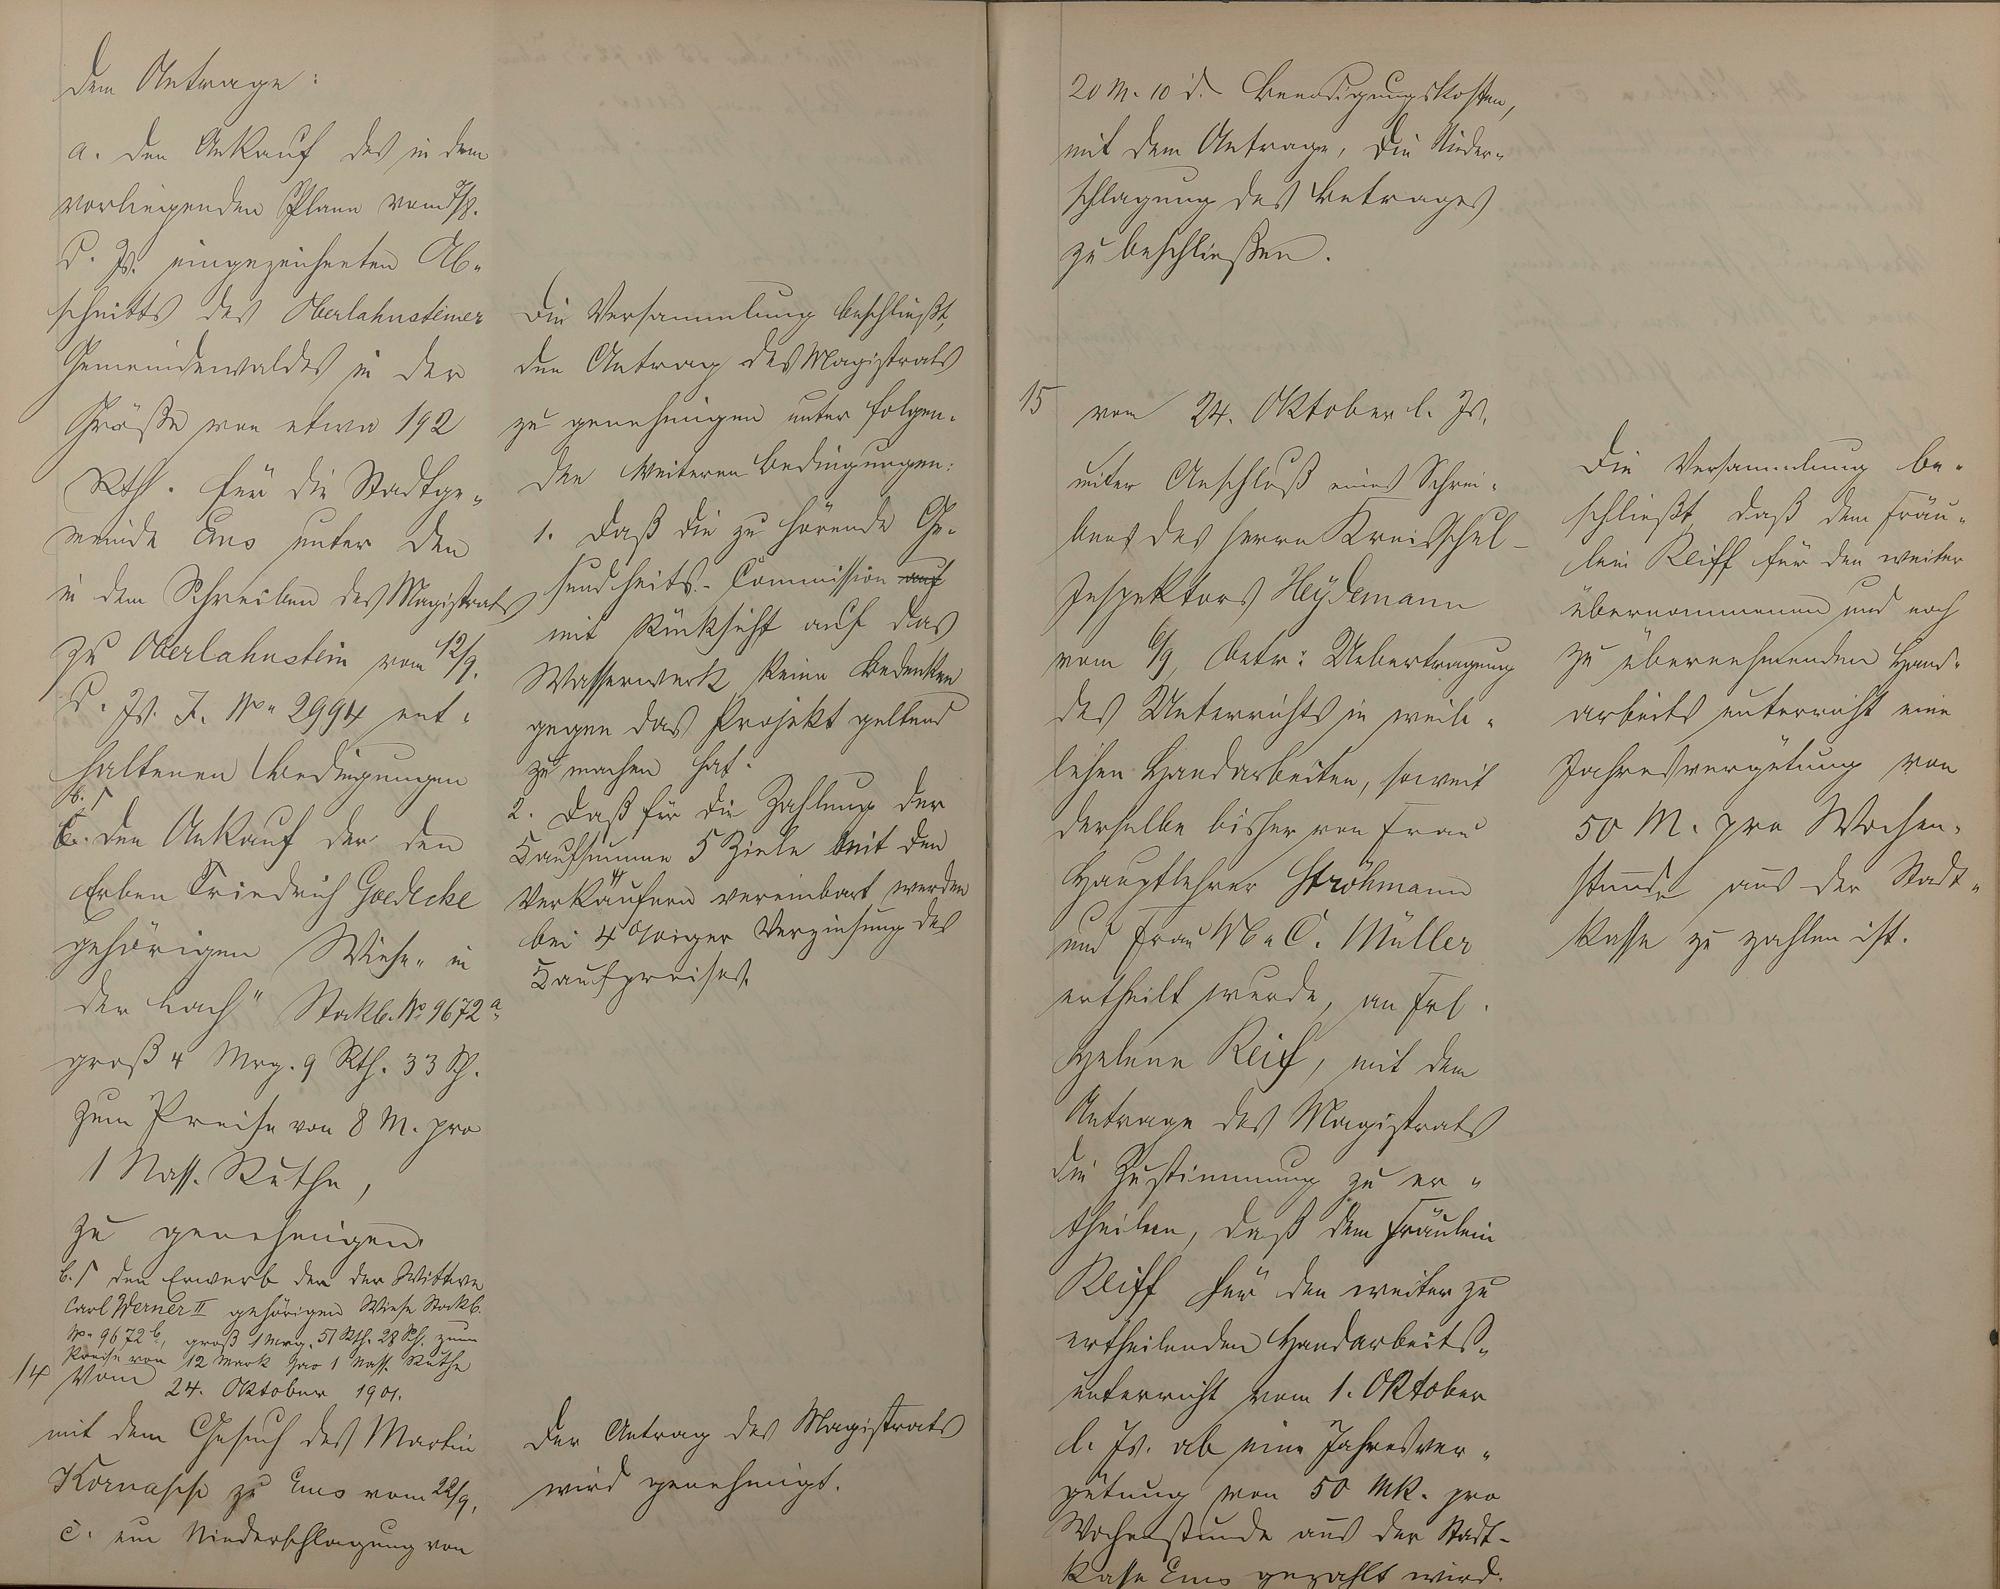 dem Antrage:
a. den Ankauf des in dem
vorliegenden Plane vom
d. Js. eingezeichneten Ab-
schnitts des Oberlahnsteiner
Gemeindewaldes in der
Größe von etwa 192
Rth. für die Stadtge-
meinde Ems unter den
in dem Schreiben des Magistrats
zu Oberlahnstein vom 12/9.
d. Js. J. No. 2994 ent-
haltenen Bedingungen
den Ankauf der den
Erben Friedrich Goedecke
gehörigen Wiese "in
der Lach" Stockb. No 9672 a,
groß 4 Mrg. 9 Rth. 33 Sch.
zum Preise von 8 M. pro
1 Nass. Ruthe,
zu genehmigen.
b.) den Erwerb der der Wittwe
Carl Werner II gehörigen Wiese Stockb.
No. 9672 b, groß 1 Mrg. 51 Rth. 28 Sch. zum
Preise von 12 Mark pro 1 Nass. Ruthe
14 Vom
24. Oktober 1901.
mit dem Gesuch des Martin
Kornasch zu Ems vom 22/9.
c. um Niederschlagung von
Die Versammlung beschließt,
den Antrag des Magistrats
zu genehmigen unter folgen-
den weiteren Bedingungen:
1. Daß die zu hörende Ge-
sundheits-Commission auf
mit Rücksicht auf das
Wasserwerk keine Bedenken
gegen das Projekt geltend
zu machen hat.
2. Daß für die Zahlung der
Kaufsumme 5 Ziele mit den
Verkäufern vereinbart werden
bei 4 %iger Verzinsung des
Kaufpreises.
Der Antrag des Magistrats
wird genehmigt.
20 M. 10 d. Beerdigungskosten,
mit dem Antrage, die Nieder-
schlagung des Betrages
zu beschließen.
15 vom 24. Oktober l. Js.
unter Anschluß eines Schrei-
bens des Herrn Kreisschul-
Inspektors Heydemann
vom 6/9, betr: Uebertragung
des Unterrichts in weib-
lichen Handarbeiten, soweit
derselbe bisher von Frau
Hauptlehrer Ströhmann
und Frau W. C. Müller
ertheilt wurde, an Frl.
Helene Reif, mit dem
Antrage des Magistrats
die Zustimmung zu er-
theilen, daß dem Fräulein
Reiff für den weiter zu
ertheilenden Handarbeits-
unterricht vom 1. Oktober
l. Js. ab eine Jahresver-
gütung von 50 Mk. pro
Wochenstunde aus der Stadt-
kasse Ems gezahlt wird.
Die Versammlung be-
schließt, daß dem Fräu-
lein Reiff für den weiter
übernommenen und noch
zu übernehmenden Hand-
arbeitsunterricht eine
Jahresvergütung von
50 M. pro Wochen-
stunde aus der Stadt-
kasse zu zahlen ist.